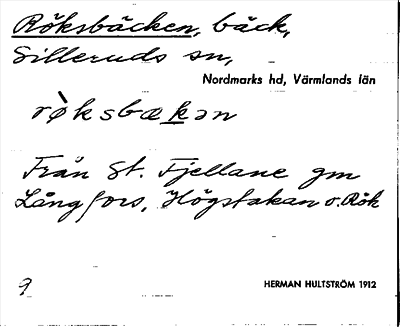 Röksbäcken, bäck,
Silleruds sn,
Nordmarks hd, Värmlands län
rø̀ksbækən
Från St. Fjellane gm
Långfors, Högstakan o. Rök
9
HERMAN HULTSTRÖM 1912